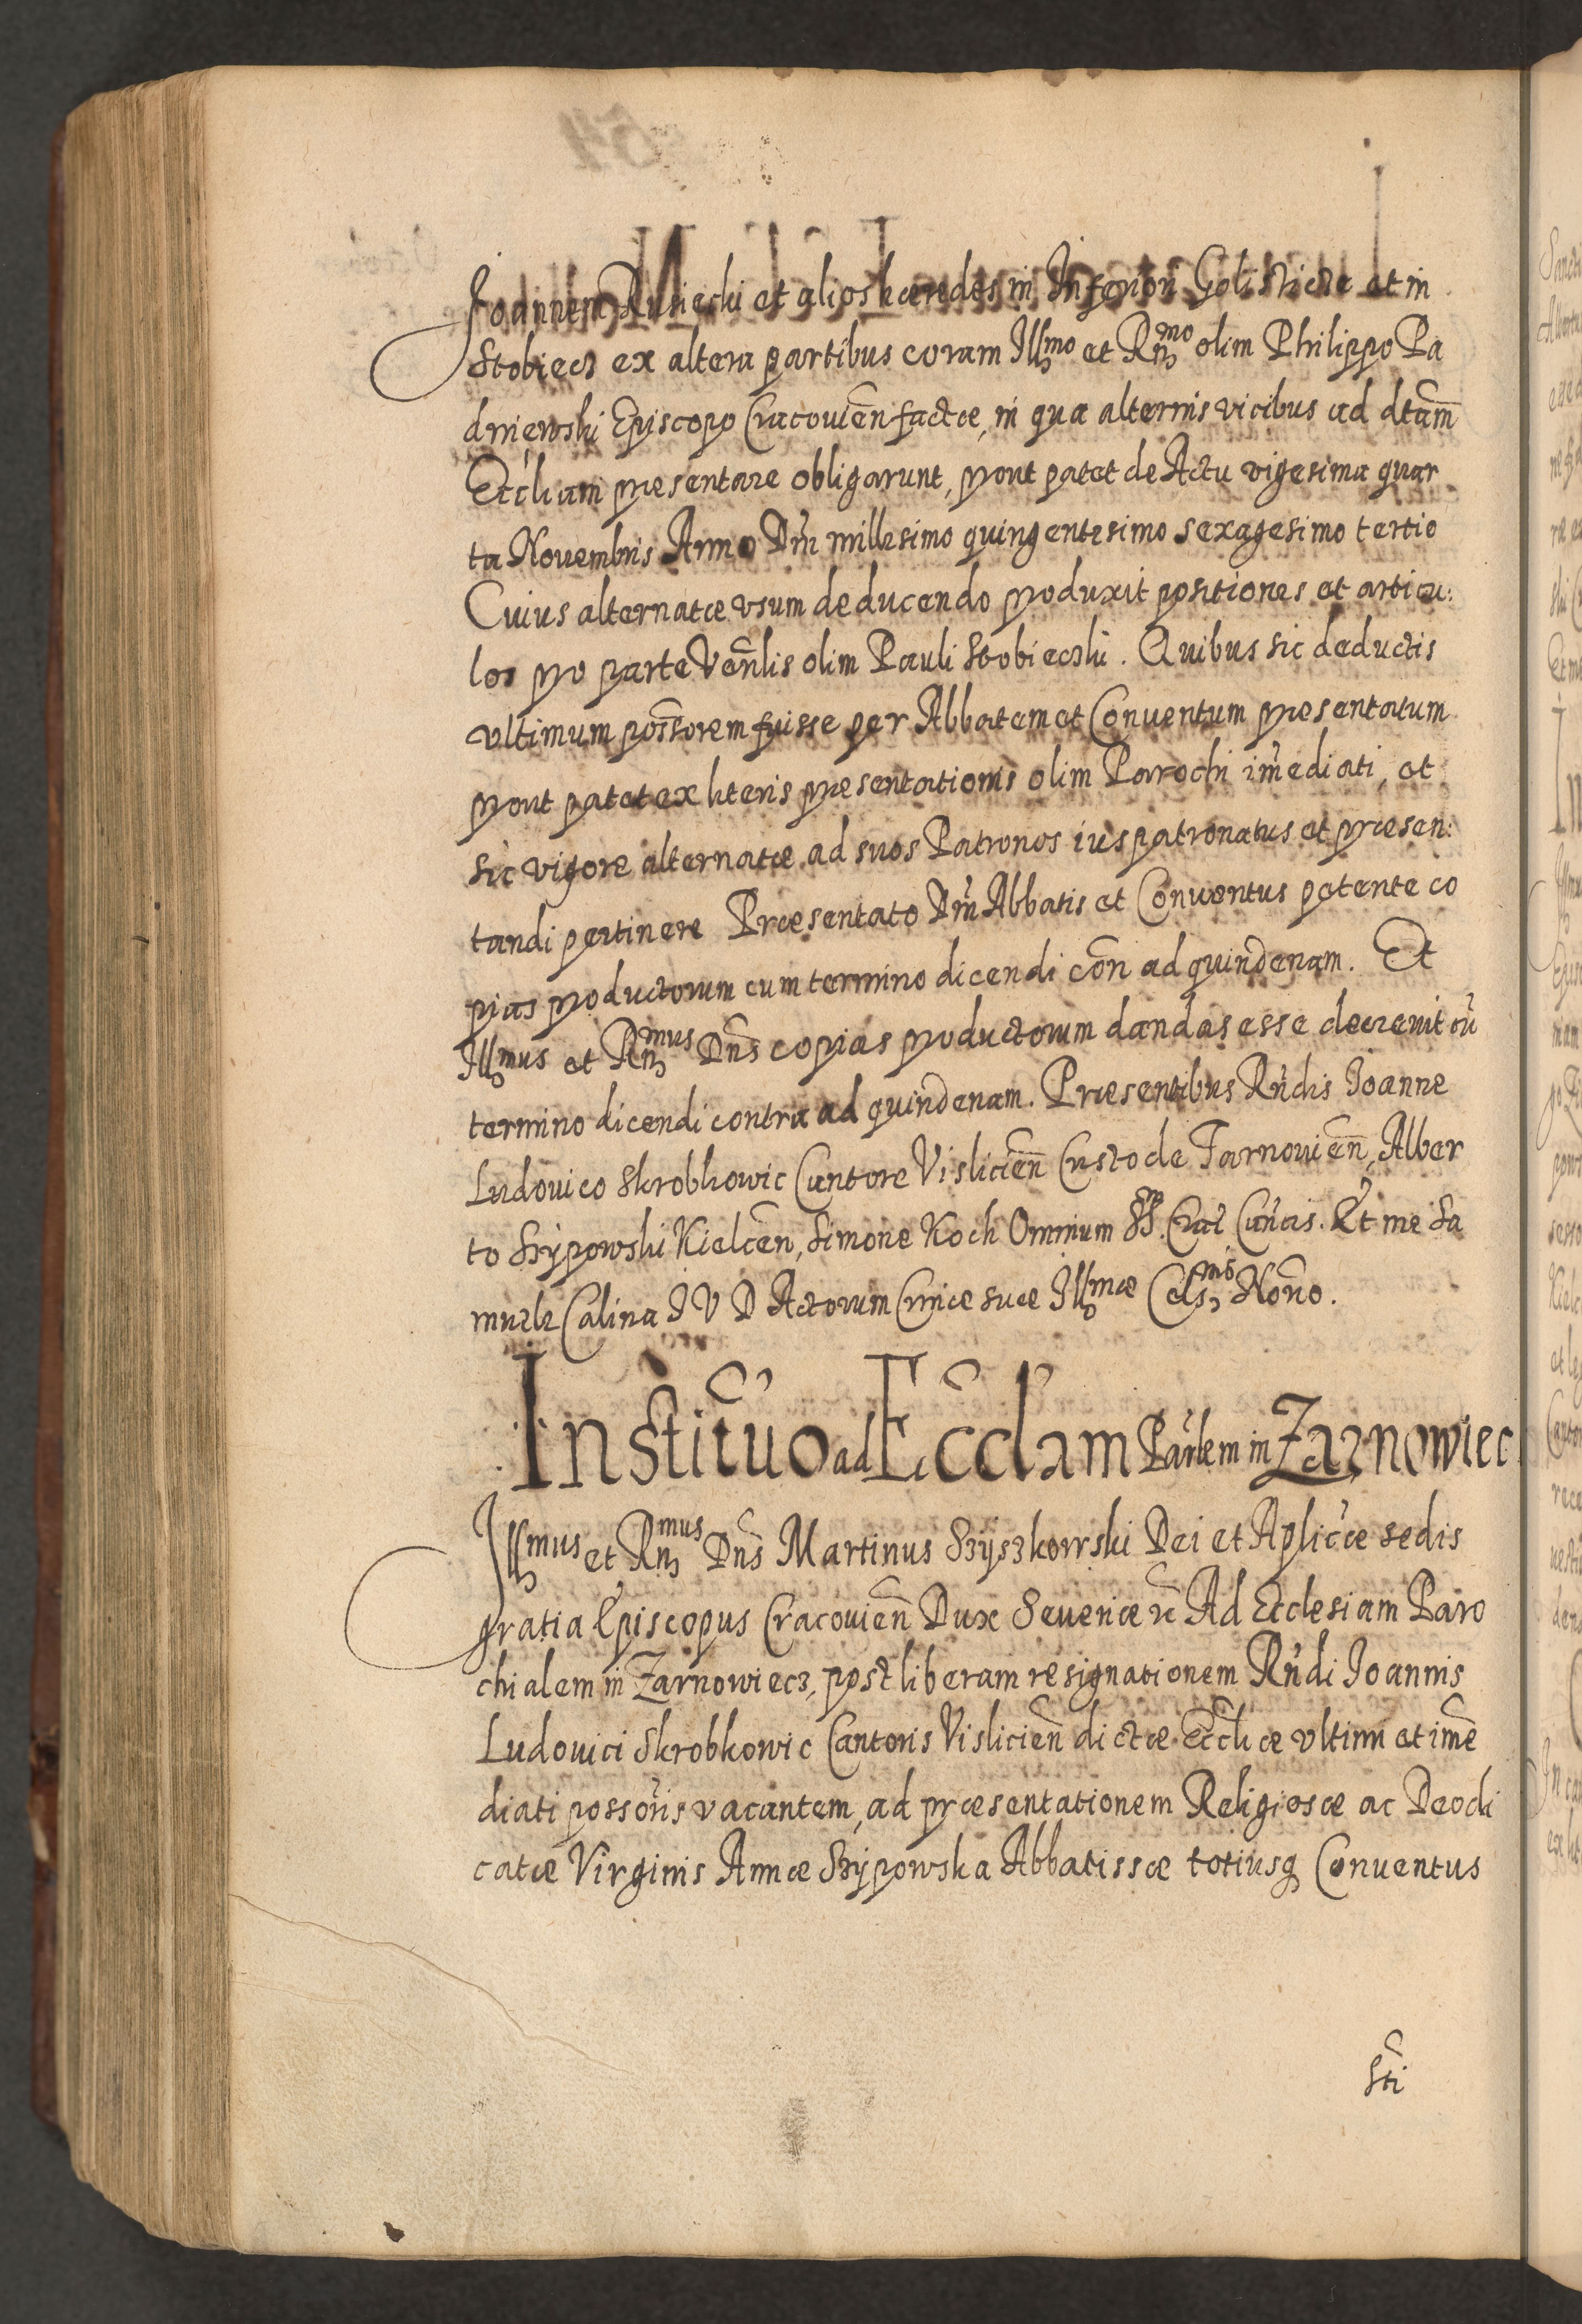 Joannem Rusiecki et alios hæredes in Inferiori Golisticze et in
Stobiecz ex altera partibus coram Illmo et Rndmo olim Philippo Pa
dniewski Episcopo Cracovien̄ factæ, in qua alternis vicibus ad dtām
Ecclīam præsentare obligarunt, prout patet de Actu vigesima quar
ta Novembris Anno Dn̄i millesimo quingentesimo sexagesimo tertio
Cuius alternatæ vsum deducendo produxit positiones et articu:
los pro parte Ven̄lis olim Pauli Stobieczki. Quibus sic deductis
vltimum poss̄orem fuisse per Abbatem et Conuentum præsentatum
prout patet ex literis præsentationis olim Parochi im̄ediati, et
sic vigore alternatæ ad suos Patronos ius patronatus et præsen:
tandi pertinere Præsentato Dn̄i Abbatis et Conventus petente co
pias productorum cum termino dicendi con̄ ad quindenam. Et
Illmus et Rndmus Dn̄s copias productorum dandas esse decrevit cū
termino dicendi contra ad quindenam. Præsentibus Rn̄dis Joanne
Ludovico Skrobkowic Cantore Vislicien̄ Custode Tarnovien̄, Alber
to Szypowski Kielcen̄, Simone Koch Omnium SS. Crac̄ Can̄cis. Et me Sa
muele Calina J V D Actorum Cn̄iæ suæ Illmæ Cels. Notr̄o.
Institu͞o ad Ecc͞lam Par͞lem in Zarnowiec
Illmus et Rndmus Dn̄s Martinus Szyszkowski Dei et Aplicæ sedis
gratia Episcopus Cracovien̄ Dux Severiæ &c Ad Ecclesiam Paro
chialem in Zarnowiecz, post liberam resignationem Rn̄di Joannis
Ludovici Skrobkowic Cantoris Vislicien̄ dictæ Eccl̄iæ vltimi et im̄e
diati possor̄is vacantem, ad præsentationem Religiosæ ac Deo di
catæ Virginis Annæ Szypowska Abbatissæ totiusq̨ Conventus
Sti